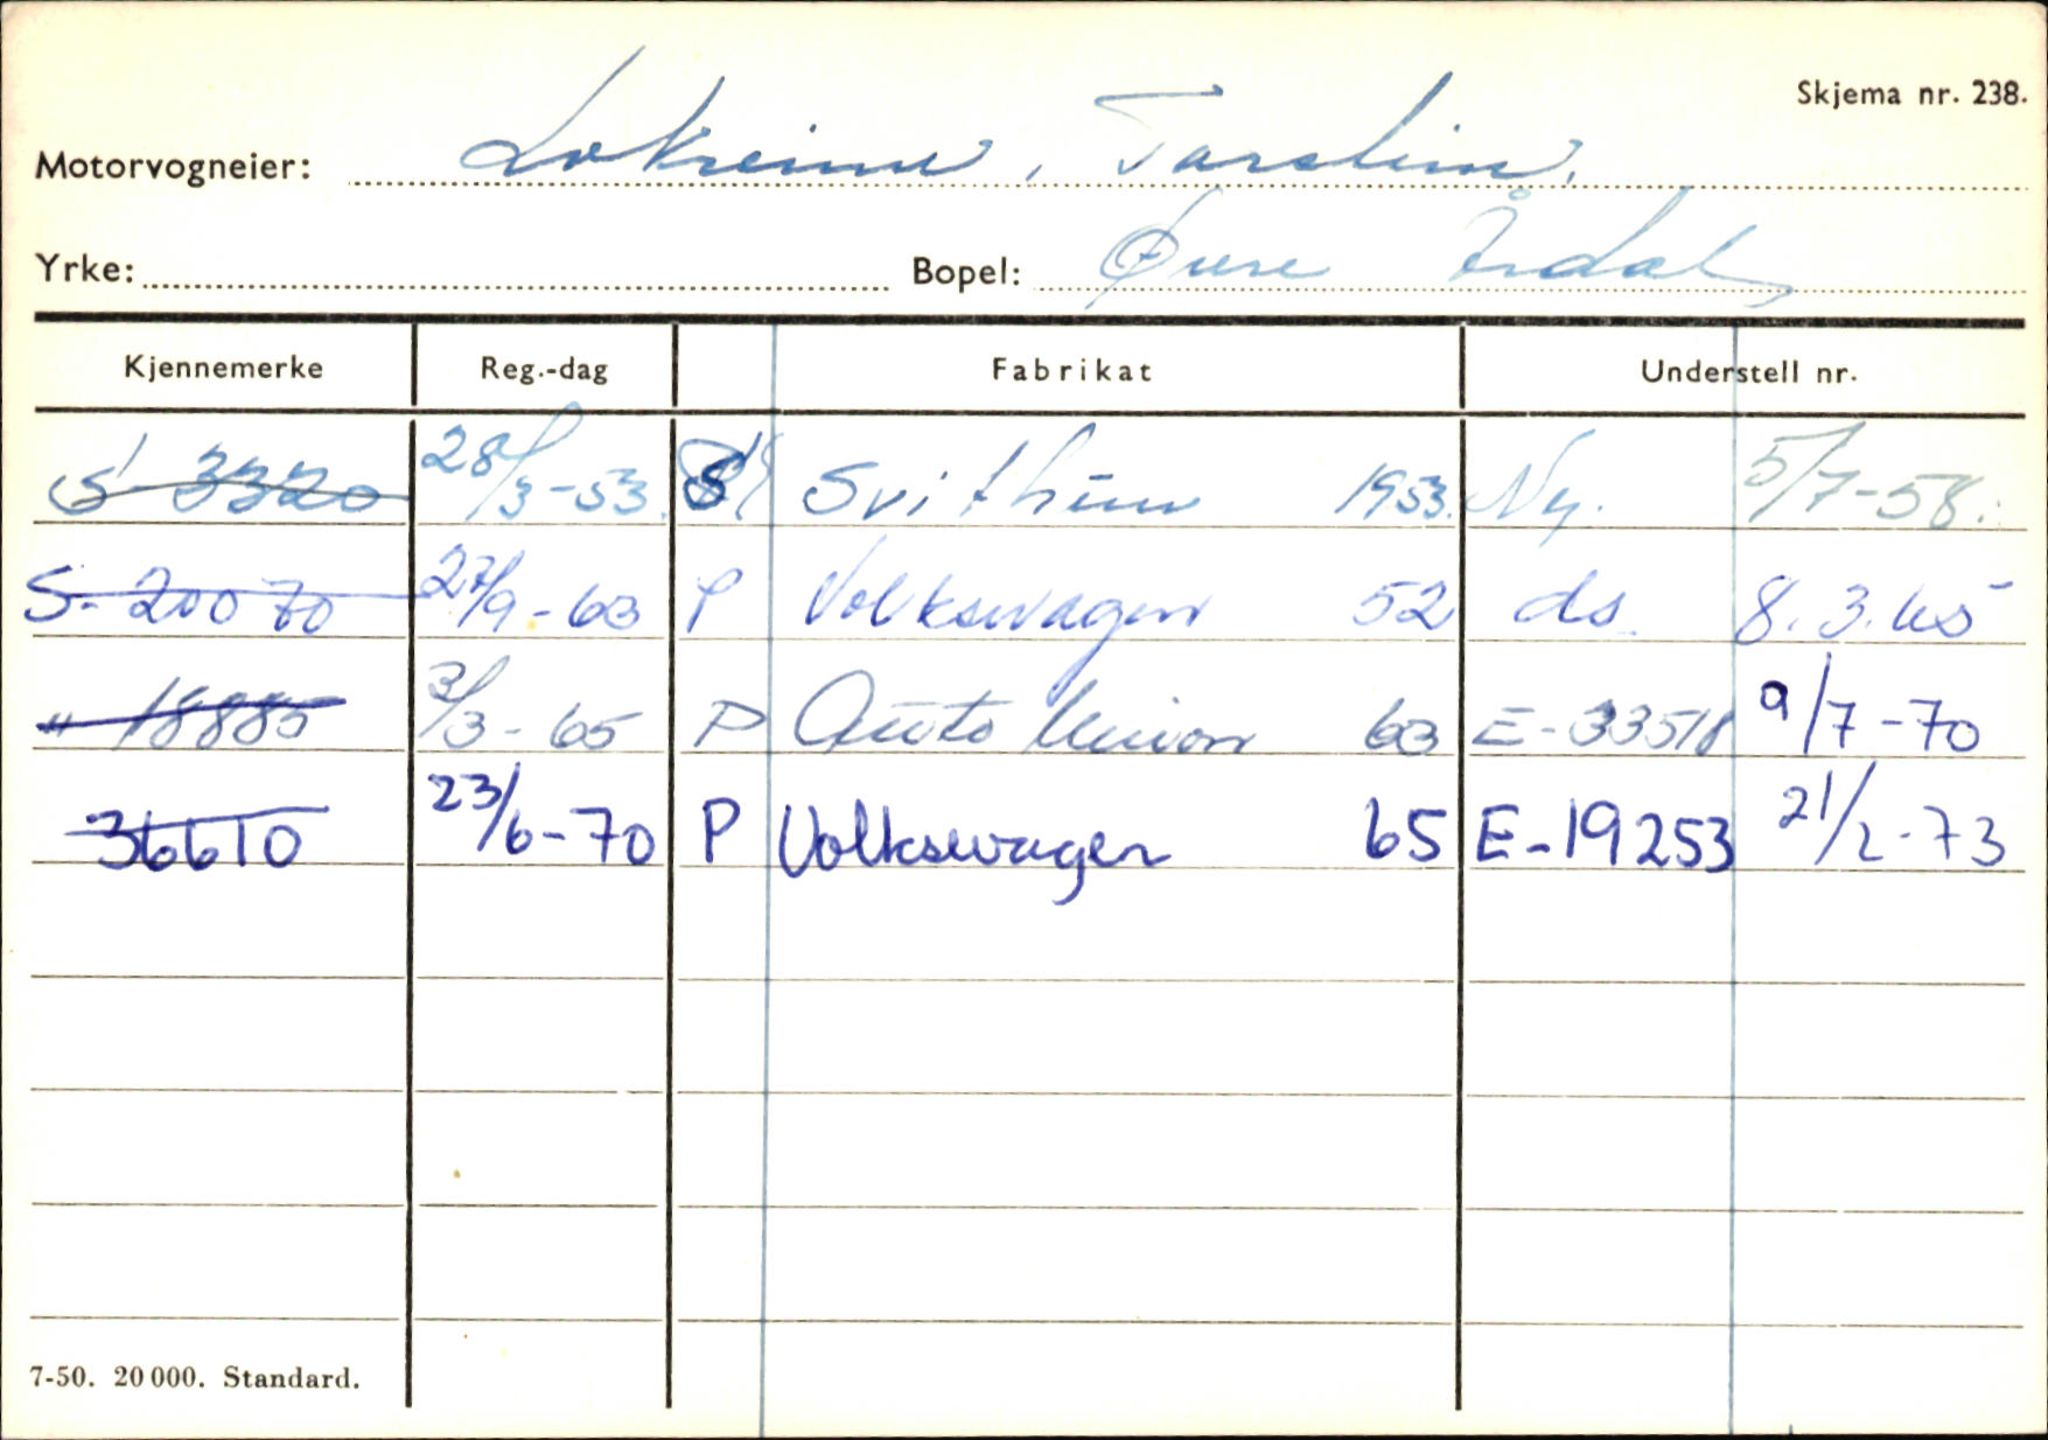 Skjema nr. 238.
Motorvogneier: Lokreim, Torstein.
Yrke: Bopel: Øvre Årdal
Kjennemerke Reg.-dag Fabrikat Understell nr.
S 3320 28/3-53. Svithun 1953. Ny. 5/7-58.
S- 20070 27/9-63 P Volkswagen 52 ds. 8.3.65
" 18885 3/3-65 P Auto Union 63 E-33518 9/7-70
36610 23/6-70 P Volkswagen 65 E-19253 21/2-73
7-50. 20 000. Standard.